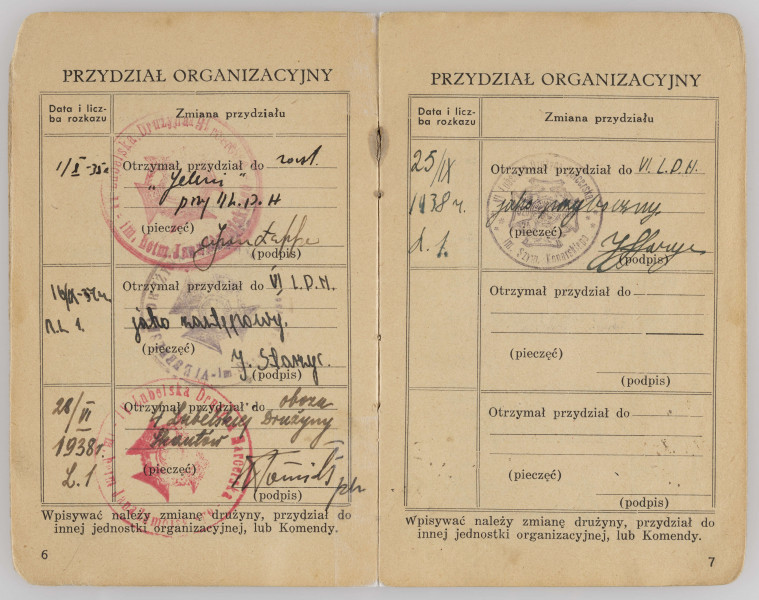 PRZYDZIAŁ ORGANIZACYJNY
Data i licz-
ba rozkazu
Zmiana przydziału
1/X -35r
Otrzymał przydział do zast.
"Jeleni"
przy II L.D.H
(pieczęć)
(podpis)
Otrzymał przydział do VI L.D.H.
R.L 1.
jako zastępowy.
(pieczęć)
J. Starzyc.
(podpis)
28/VI
1938r.
L.1
Otrzymał przydział do obozu
Lubelskiej Drużyny
Skautów
(pieczęć)
(podpis)
Wpisywać należy zmianę drużyny, przydział do
innej jednostki organizacyjnej, lub Komendy.
6
PRZYDZIAŁ ORGANIZACYJNY
Data i licz-
ba rozkazu
Zmiana przydziału
25/IX
1938 r.
L. 1.
Otrzymał przydział do VI. L.D.H.
jako przyboczny
(pieczęć)
(podpis)
Otrzymał przydział do
(pieczęć)
(podpis)
Otrzymał przydział do
(pieczęć)
(podpis)
Wpisywać należy zmianę drużyny, przydział do
innej jednostki organizacyjnej, lub Komendy.
7